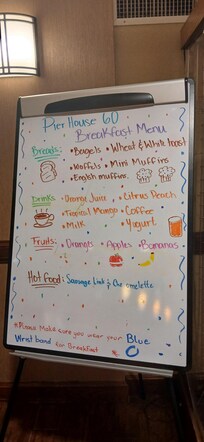 Pier House 60
Breakfast Menu
Breads: • Bagels • Wheat & White toast
• Waffels • Mini Muffins
• English muffins
Drinks • Orange Juice • Citrus Peach
• Tropical Mango • Coffee
• Milk • Yogurt
Fruits: • Oranges • Apples • Bananas
Hot Food: Sausage Link & Cheese omelette
*Please Make sure you wear your Blue
Wrist band for Breakfast